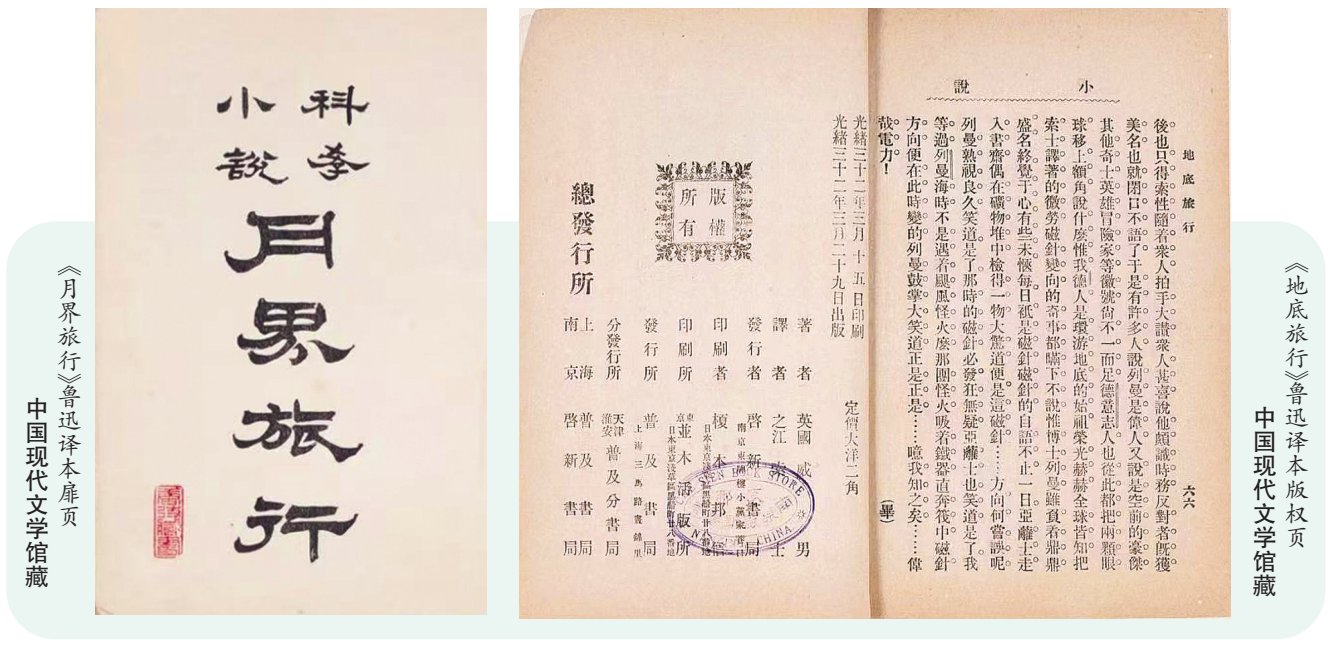 《月界旅行》鲁迅译本扉页
中国现代文学馆藏
科學
小說
月界旅行
小說
地底旅行 六六
後也只得索性隨着衆人拍手大讚衆人甚喜說他頗識時務反對者旣獲
美名也就閉口不語了于是有許多人說列曼是偉人又說是空前的豪傑
其他奇士英雄冒險家等徽號尙不一而足德意志人也從此都把兩顆眼
球移上額角說什麽惟我德人是環游地底的始祖榮光赫赫全球皆知把
索士譯著的微勞磁針變向的奇事都瞞下不說惟博士列曼雖負着鼎鼎
盛名終覺于心有些未愜每日祇是磁針磁針的自語不止一日亞離士走
入書齋偶在礦物堆中檢得一物大驚道便是這磁針……方向何嘗誤呢
列曼熟視良久笑道是了那時的磁針必發狂無疑亞離士也笑道是了我
等過列曼海時不是遇着颶風怪火麽那團怪火吸着鐵器直奔筏中磁針
方向便在此時變的列曼鼓掌大笑道正是正是……噫我知之矣……偉
哉電力！ （畢）
光緒三十二年三月十五日印刷
光緒三十二年三月二十九日出版
定價大洋二角
版權所有
著者 英國威男
譯者 之江 士
發行者 啓新書局
印刷者 榎木邦
日本東京淺草區黑船町廿八番地
印刷所 東京並木活版所
日本東京淺草區黑船町廿八番地
發行所 普及書局
上海三馬路晝錦里
分發行所 天津淮安普及分書局
總發行所
上海普及書局
南京啓新書局
STORE
CHINA
《地底旅行》鲁迅译本版权页
中国现代文学馆藏